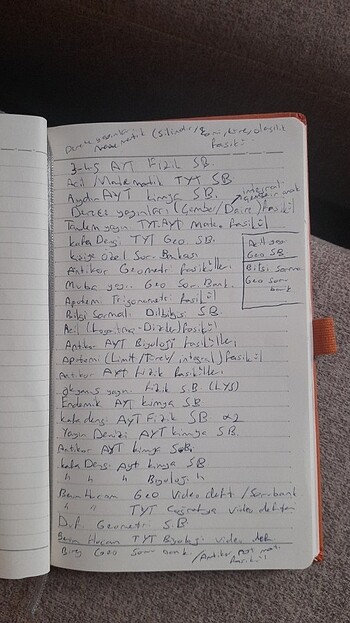 Derece yayınları
Matematik (Silindir, Koni, Küre, olasılık fasikül
3-4-5 AYT Fizik SB
Acil Matematik TYT SB
Aydın AYT kimya SB
Derece yayınları (Çember/Daire) fasikül
Tandem yayın TYT-AYT Mate. fasikül
kafa Dengi TYT Geo SB.
kişiye özel Soru Bankası
Antikor Geometri fasikülleri
Muba yayı. Geo Soru Bank.
Apotemi Trigonometri fasikül
Bilgi Sarmal Dilbilgisi SB
Acil (Logaritma-Diziler) fasikül
Antikor AYT Biyoloji fasikülleri
Apotemi (Limit/Türev/integral) fasikül
Antikor AYT Fizik fasikülleri
okyanus yayın Fizik S.B (LYS)
Endemik AYT kimya SB
kafa dengi AYT Fizik SB
Yayın Denizi AYT kimya SB.
Antikor AYT kimya SB
kafa Dengi Ayt kimya SB
" " " Biyoloji "
Benim Hocam Geo Video deft./Soru bank
" " TYT Coğrafya video defteri
Dif Geometri SB
Benim Hocam TYT Biyoloji video def
Birey Geo Soru Bank. / Antikor TYT mat fasikül
integral
Acil yay.
Geo SB
Bilgi Sarmal
Geo Soru
bank